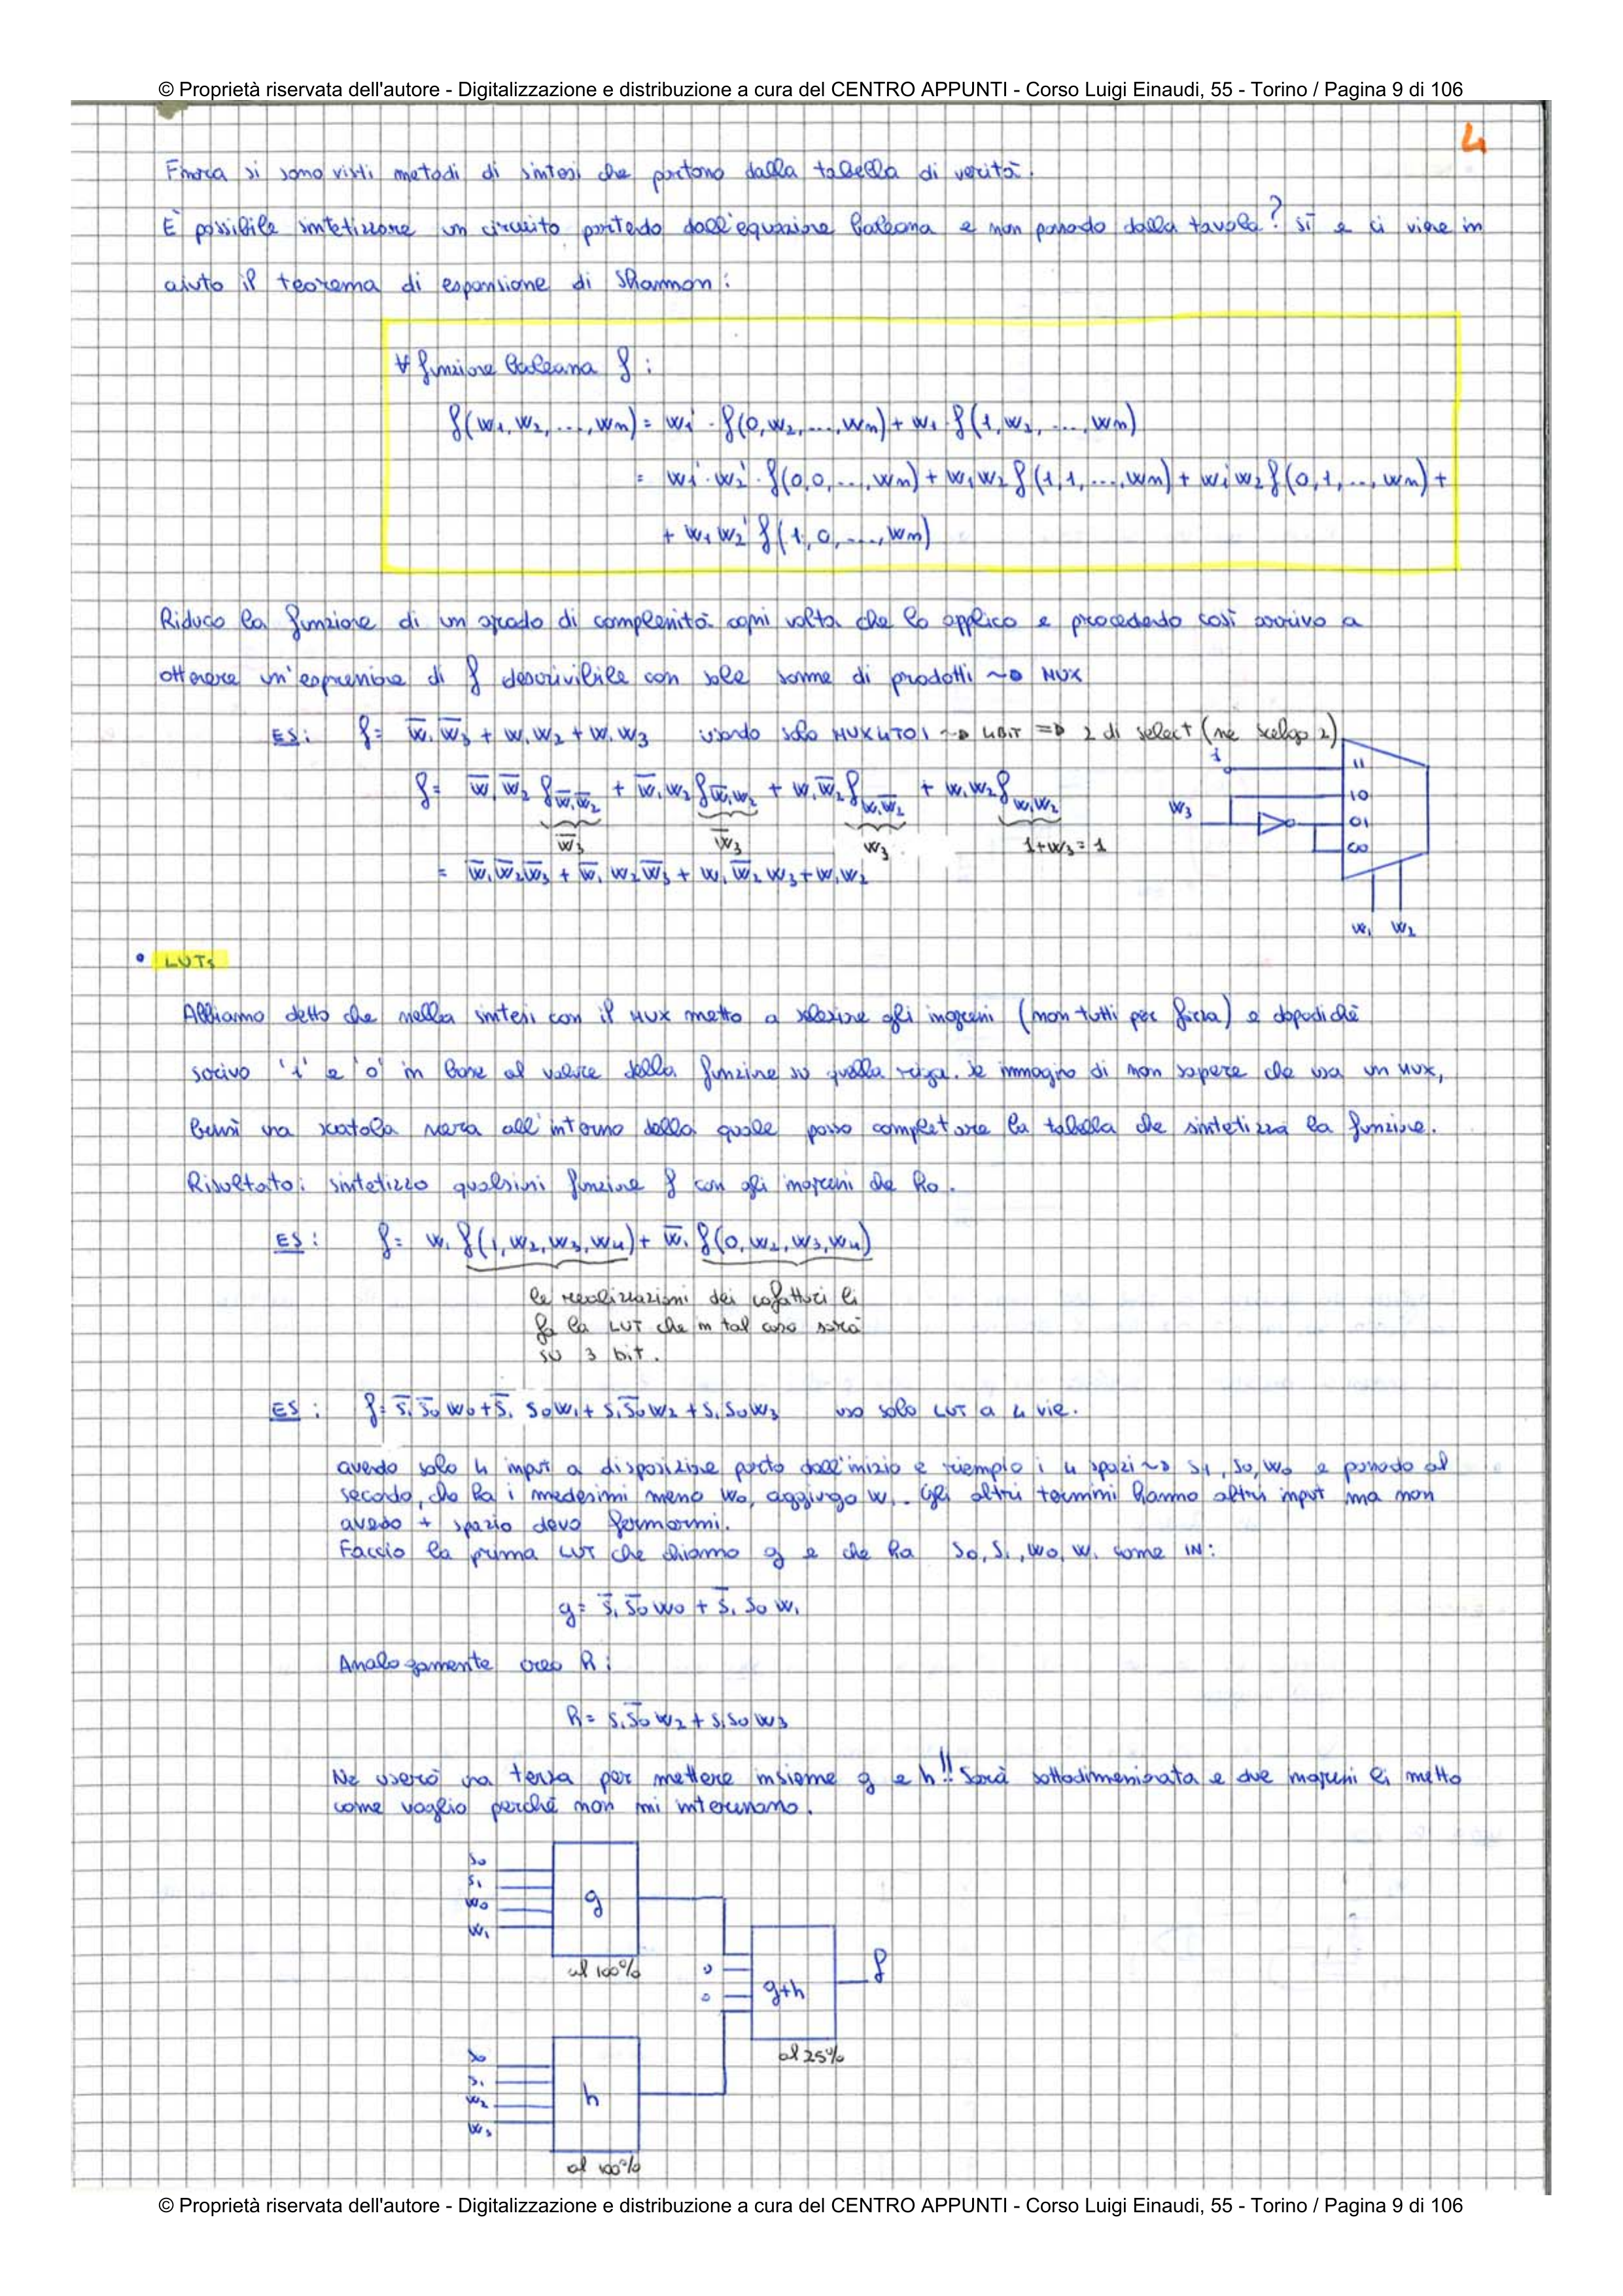 © Proprietà riservata dell'autore - Digitalizzazione e distribuzione a cura del CENTRO APPUNTI - Corso Luigi Einaudi, 55 - Torino / Pagina 9 di 106
4
Finora si sono visti metodi di sintesi che partono dalla tabella di verità.
È possibile sintetizzare un circuito partendo dall'equazione booleana e non passando dalla tavola? Sì e ci viene in
aiuto il teorema di espansione di Shannon:
∀ funzione booleana f:
f(w1, w2, ..., wn) = w1' · f(0, w2, ..., wn) + w1 · f(1, w2, ..., wn)
= w1' · w2' · f(0,0, ..., wn) + w1 w2 f(1,1, ..., wn) + w1' w2 f(0,1, ..., wn) +
+ w1 w2' f(1,0, ..., wn)
Riduco la funzione di un grado di complessità ogni volta che lo applico e procedendo così arrivo a
ottenere un'espressione di f descrivibile con sole somme di prodotti ~> MUX
ES: f = w̄1 w̄3 + w1 w2 + w1 w3 usando solo MUX4TO1 ~> 4BIT => 2 di select (ne scelgo 2)
f = w̄1 w̄2 f w̄1w̄2 + w̄1 w2 f w̄1w2 + w1 w̄2 f w1w̄2 + w1 w2 f w1w2
w̄3 w̄3 w3 1+w3=1
= w̄1 w̄2 w̄3 + w̄1 w2 w̄3 + w1 w̄2 w3 + w1 w2
1
11
10
01
00
w3
w1 w2
• LUTs
Abbiamo detto che nella sintesi con il MUX metto a selezione gli ingressi (non tutti per forza) e dopodiché
scrivo '1' e '0' in base al valore della funzione su quella riga. Se immagino di non sapere che usa un MUX,
bensì una scatola nera all'interno della quale posso completare la tabella che sintetizza la funzione.
Risultato: sintetizzo qualsiasi funzione f con gli ingressi che ho.
ES: f = w1 f(1, w2, w3, w4) + w̄1 f(0, w2, w3, w4)
le realizzazioni dei cofattori li
fa la LUT che in tal caso sarà
su 3 bit.
ES: f = s̄1 s̄0 w0 + s̄1 s0 w1 + s1 s̄0 w2 + s1 s0 w3 uso solo LUT a 4 vie.
avendo solo 4 input a disposizione parto dall'inizio e riempio i 4 spazi ~> s1, s0, w0 e passando al
secondo, che ha i medesimi meno w0, aggiungo w1. Gli altri termini hanno altri input ma non
avendo + spazio devo fermarmi.
Faccio la prima LUT che chiamo g e che ha s0, s1, w0, w1 come IN:
g = s̄1 s̄0 w0 + s̄1 s0 w1
Analogamente creo h:
h = s1 s̄0 w2 + s1 s0 w3
Ne userò una terza per mettere insieme g e h!! Sarà sottodimensionata e due ingressi li metto
come voglio perché non mi interessano.
s0
s1
w0
w1
g
al 100%
0
0
g+h
f
al 25%
s0
s1
w2
w3
h
al 100%
© Proprietà riservata dell'autore - Digitalizzazione e distribuzione a cura del CENTRO APPUNTI - Corso Luigi Einaudi, 55 - Torino / Pagina 9 di 106